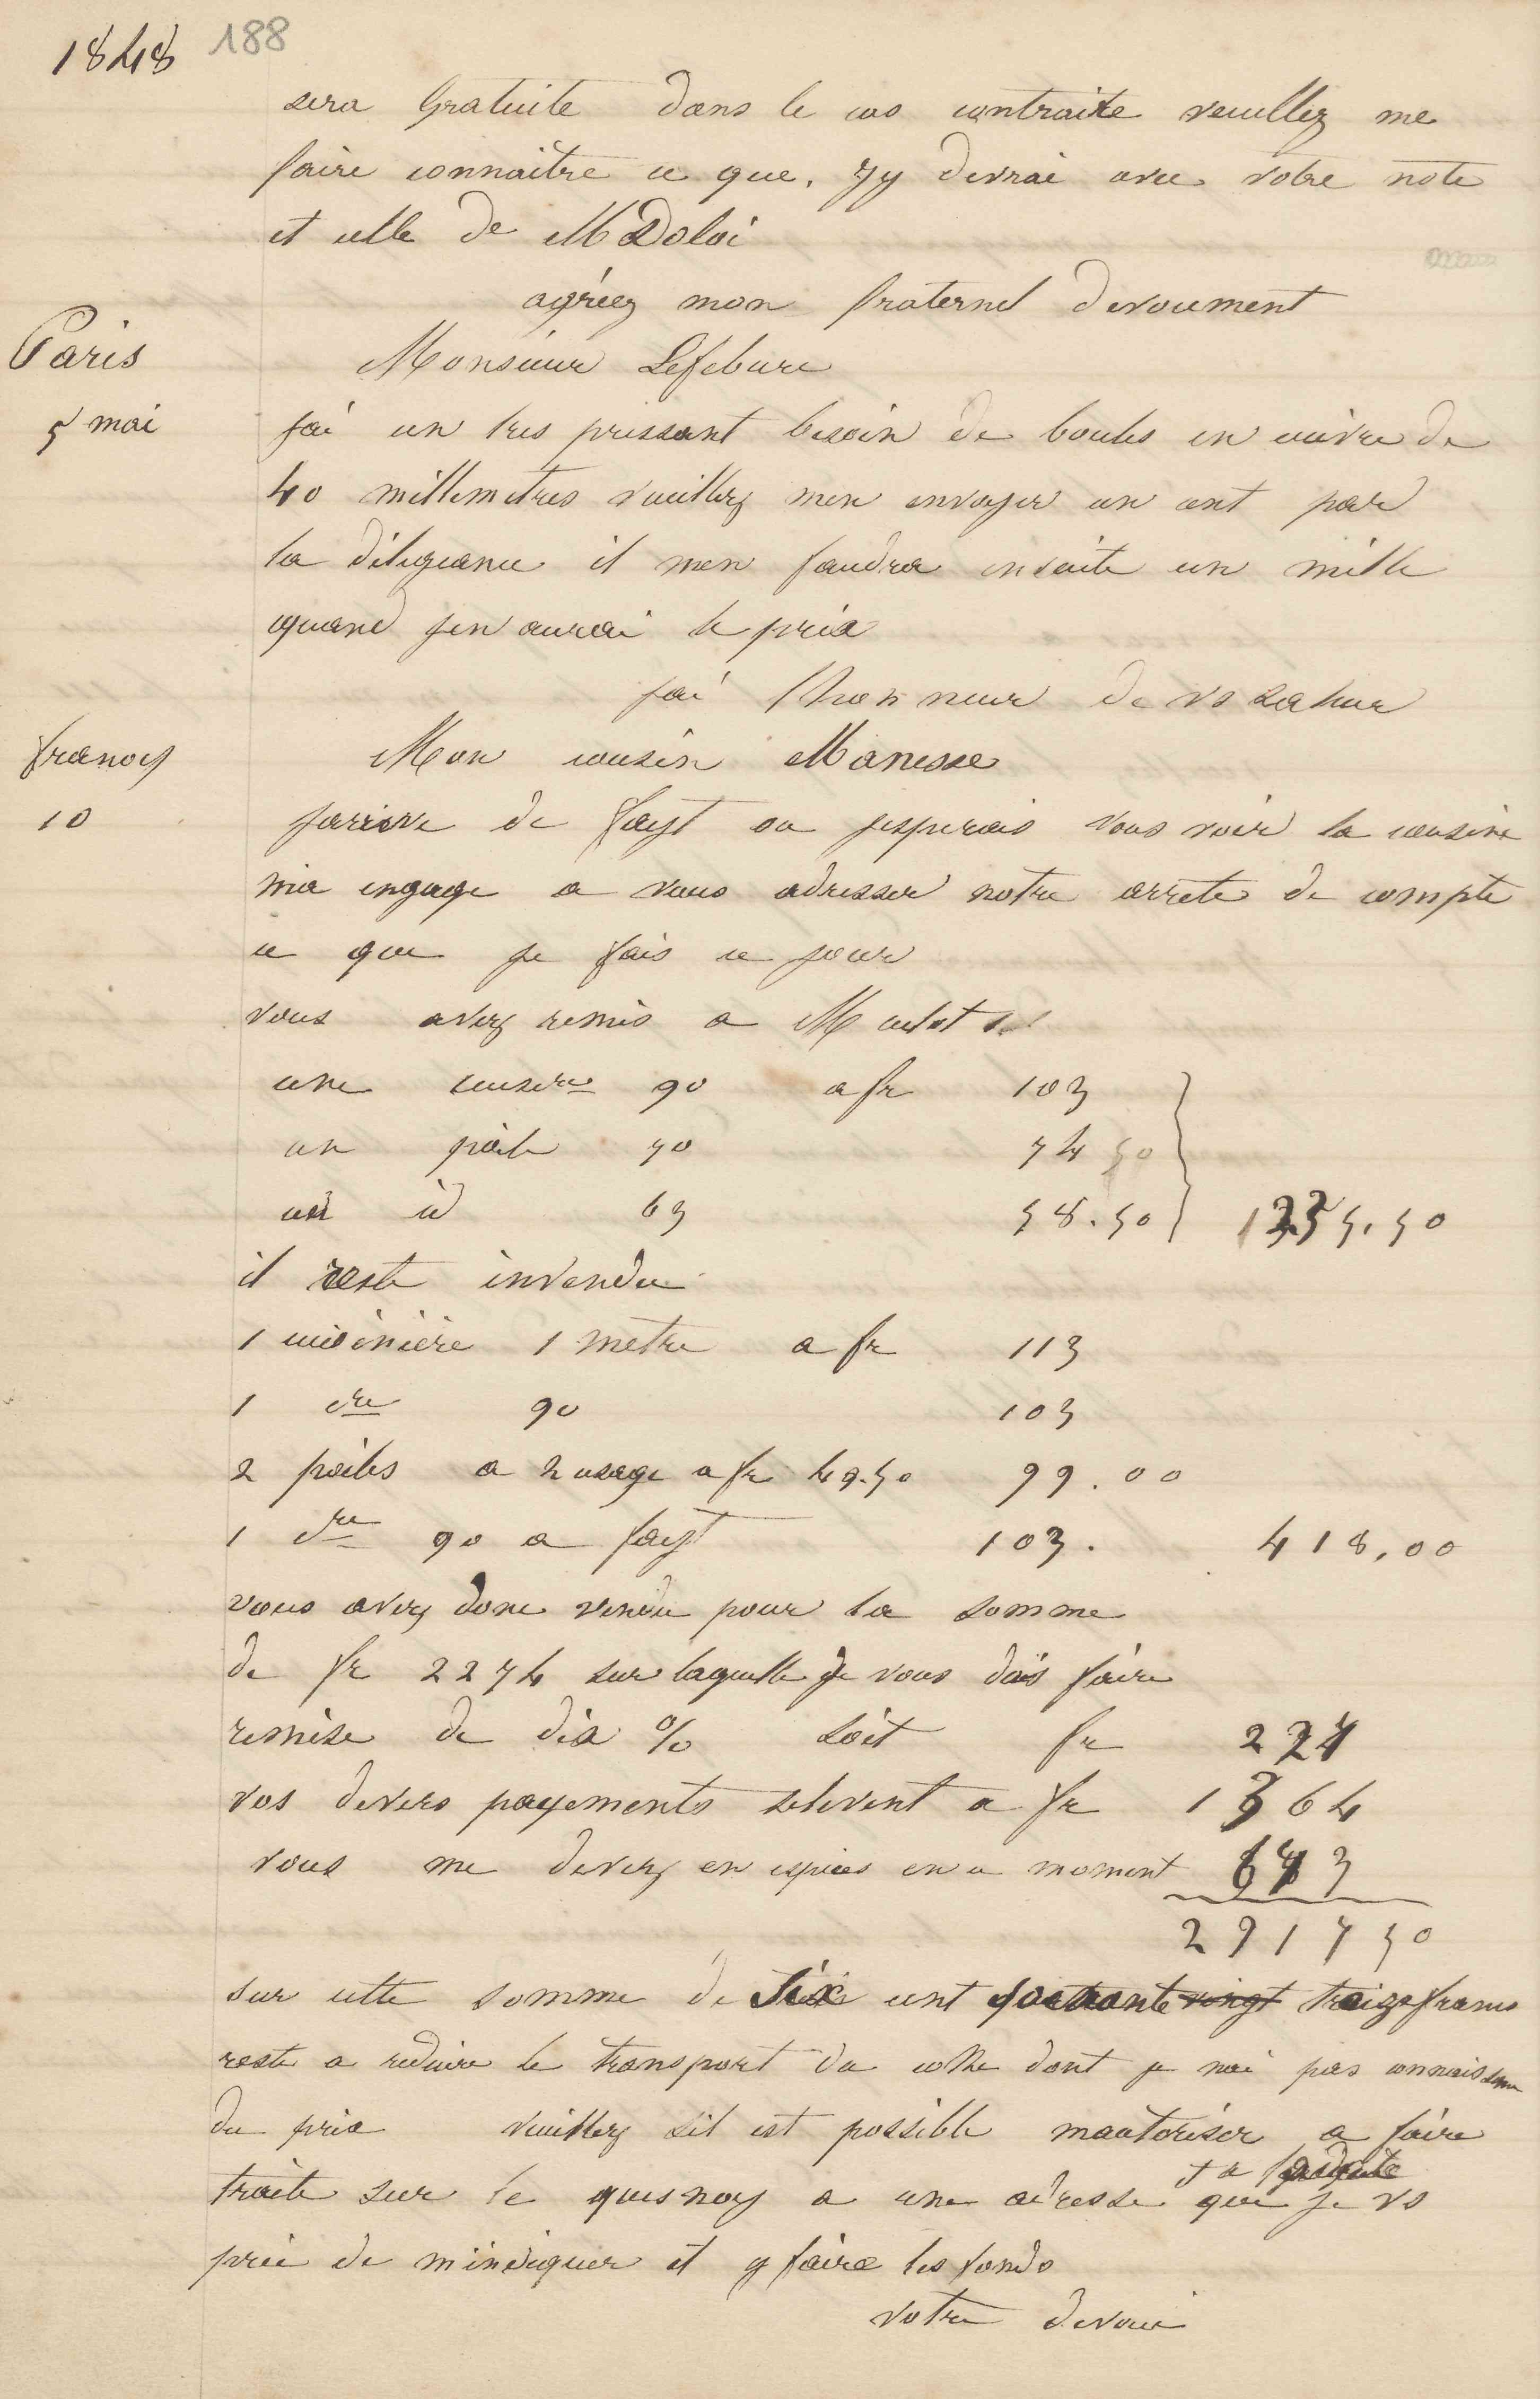 1848 188
sera Gratuite dans le cas contraire veuillez me
faire connaitre ce que j'y devrai avec votre note
et celle de M Doloi
agréez mon fraternel devoument
Paris
Monsieur Lefebure
5 mai
jai un tres pressant besoin de boules en cuivre de
40 millemetres veuillez men envoyer un cent par
la diligeance il men faudra ensuite un mille
quand jen aurai le prix
jai lhonneur de vs saluer
francs
Mon cousin Manesse
10
jarrive de fayt ou jesperais vous voir la cousine
ma engage a vous adresser notre arrete de compte
ce que je fais ce jour
vous avez remis a M
une cuisre 90 a fr 103
un poile 70 74 50
un id 63 58.50 1235.50
il reste invendu
1 cuisiniere 1 metre a fr 113
1 dre 90 103
2 poiles a 2 usage a fr 49.50 99.00
1 dre 90 a fayt 103. 418,00
vous avez donc vendu pour la somme
de fr 2274 sur laquelle je vous dois faire
remise de dix % soit fr 227
vos divers payements selevent a fr 1364
vous me devez en espices en ce moment 673
2917 50
sur cette somme de Six cent soixante vingt treize francs
reste a reduire le transport du coke dont je nai pas connaissance
du prix veuillez sil est possible mautoriser a faire
traite sur le quesnoy a une adresse que je vs
prie de mindiquer et y faire les fonds
votre devoué